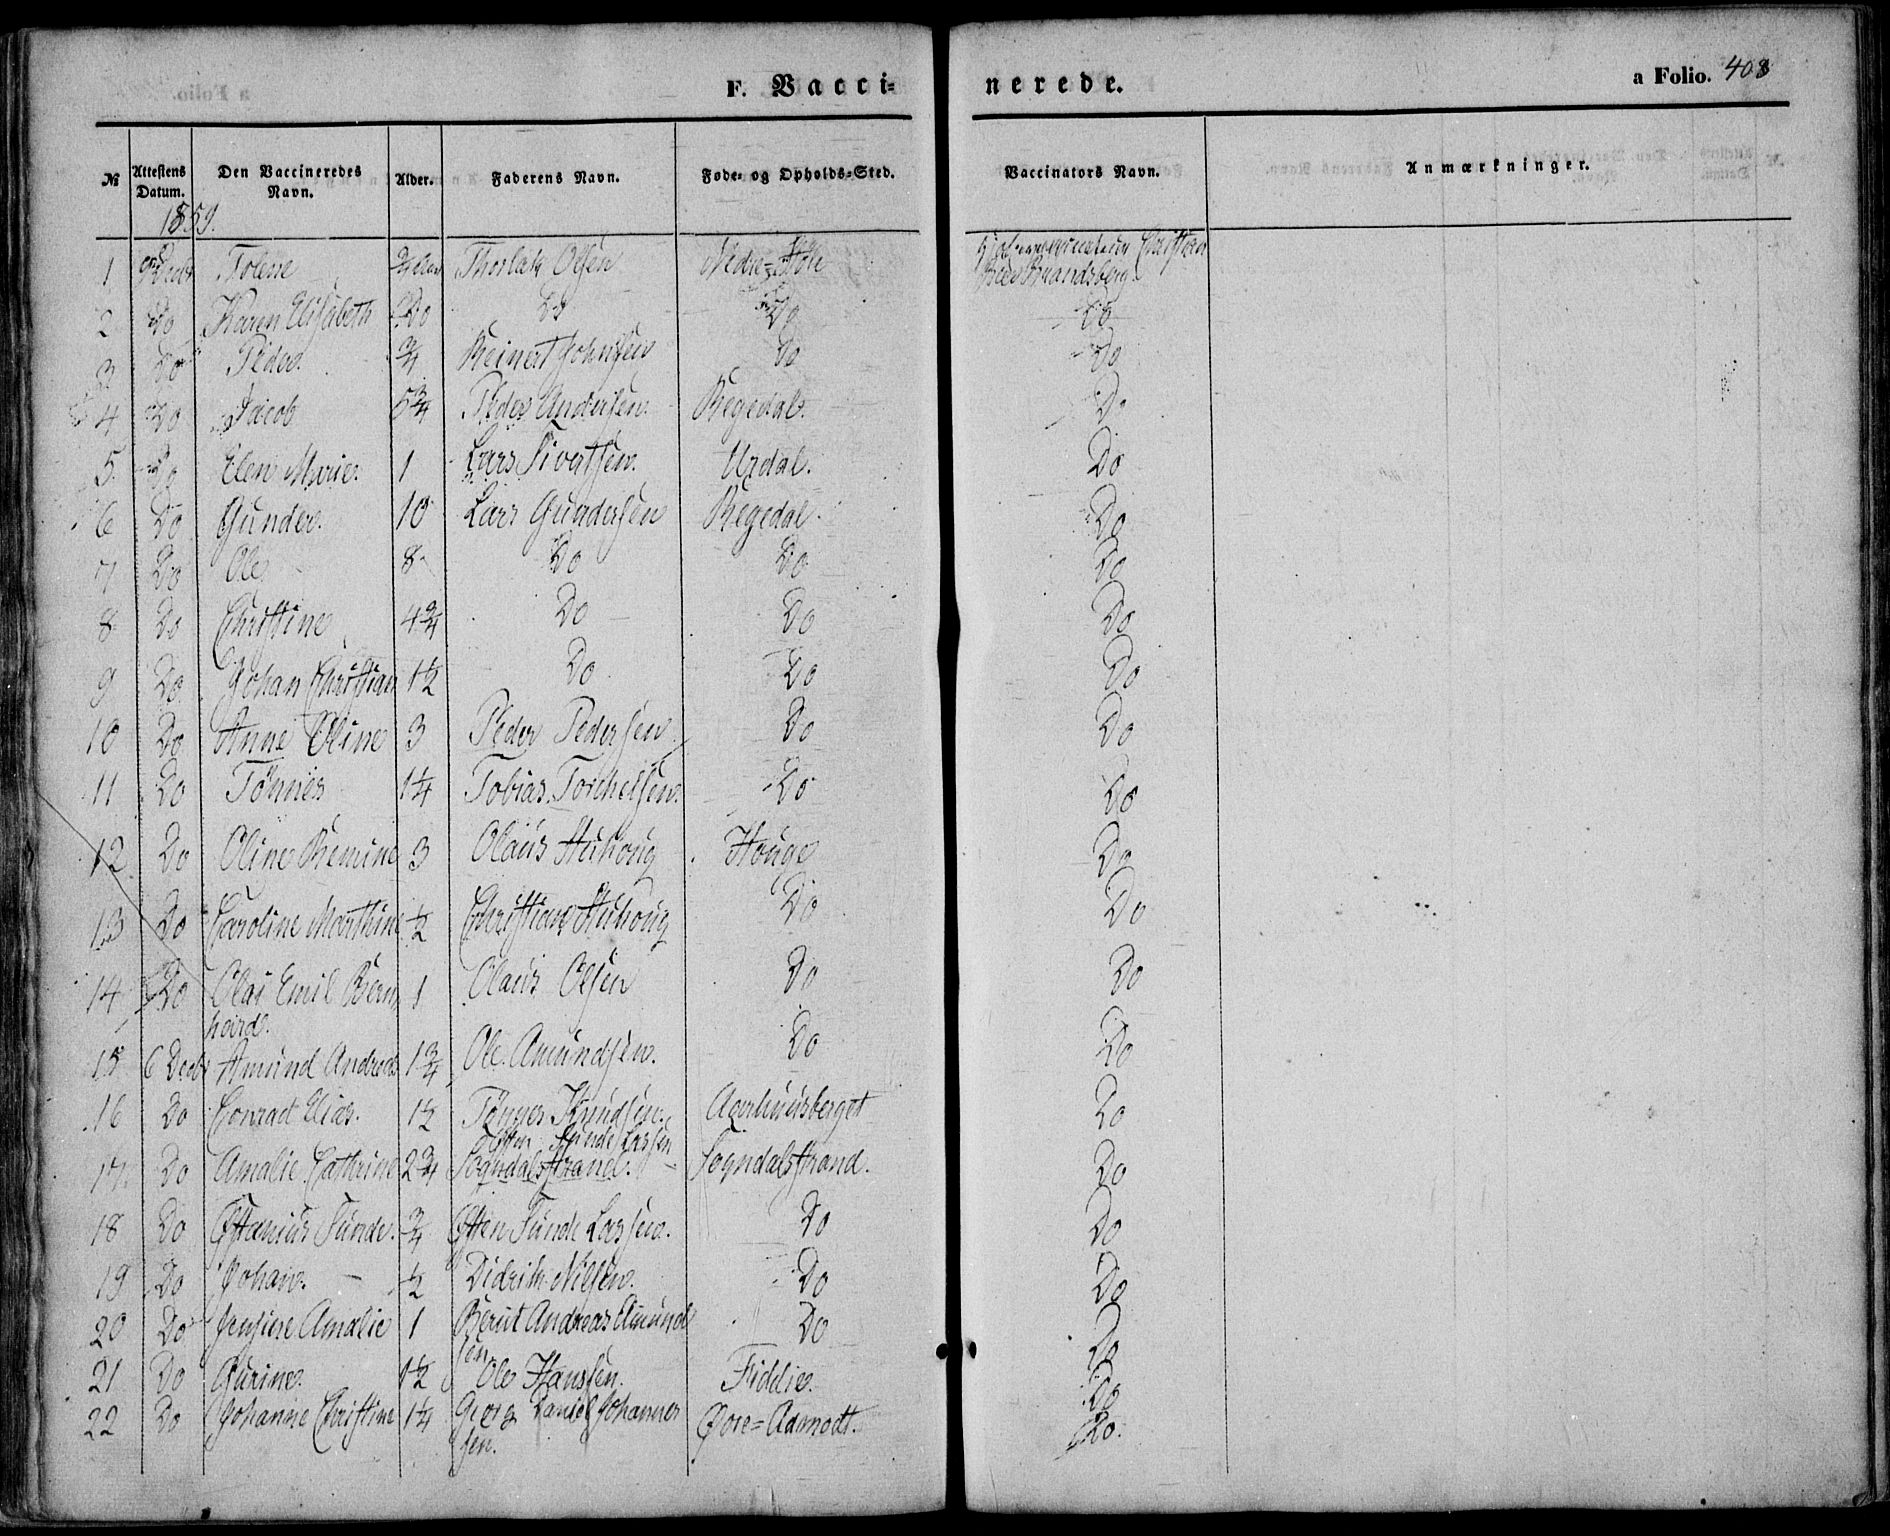 F. Vacci- nerede.
a Folio. 408
№ Attestens Datum. Den Vaccineredes Navn. Alder. Faderens Navn. Føde- og Opholds-Sted. Vaccinators Navn. Anmærkninger.
1859.
1 Tolene 3/4 Thorlak Olsen Nedre- Christian
2 Do Karen Elisabeth Do Do Do Do
3 Do Peder. 3/4 Reinert Johnsen Do Do
4 Do Jacob 5 3/4 Peder Andersen. Regedal. Do
5 Do Elen Marie. 1 Lars Sivertsen. Urdal. Do
6 Do Gunder. 10 Lars Gundersen Regedal. Do
7 Do Ole 8 Do Do Do
8 Do Christine 4 3/4 Do Do Do
9 Do Johan Christian 1 1/2 Do Do Do
10 Do Anne Oline 3 Peder Pedersen Do Do
11 Do Tönnes 1 1/4 Tobias Torchelsen. Do Do
12 Do Oline Remine 3 Olaus Houge Do
13 Do Caroline Marthine 1/2 Christian Do Do
14 Do Olai Emil Bern 1 Olaus Olsen Do Do
hard.
15 6 Decbr Amund Andreas 1 3/4 Ole Amundsen. Do Do
16 Do Conrad Elias. 1 1/2 Tönnes Knudsen. Agerhuusberget Do
Østen Sunde Lassen
17. Do Amalie Cathrine 2 3/4 Sogndalsstrand. Sogndalstrand. Do
18 Do Østenius Sunde. 3/4 Østen Sunde Lassen. Do Do
19 Do Johan. 1/2 Didrik Nilsen. Do Do
20 Do Jensine Amalie 1 Bernt Andreas Amund Do Do
sen
21 Do Gurine. 1 1/2 Ole Hanssen. Fidelie. Do
22 Do Johanne Christine 1 1/4 Georg Daniel Johannes Øvre=Aamodt. Do.
sen.